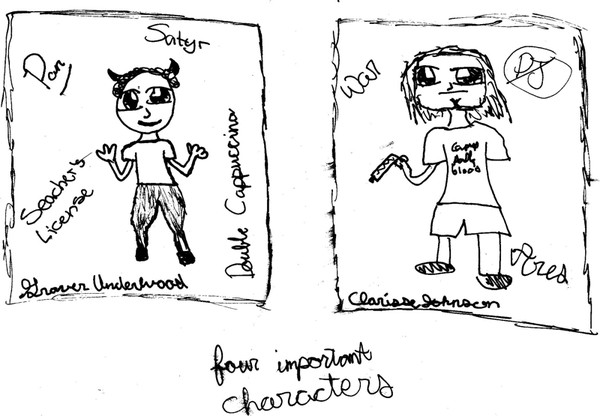 Satyr
Pan
Seachers
License
Double Cappuccino
Grover Underwood
War
PJ
Camp
Half
blood
Ares
Clarisse Johnson
four important
characters